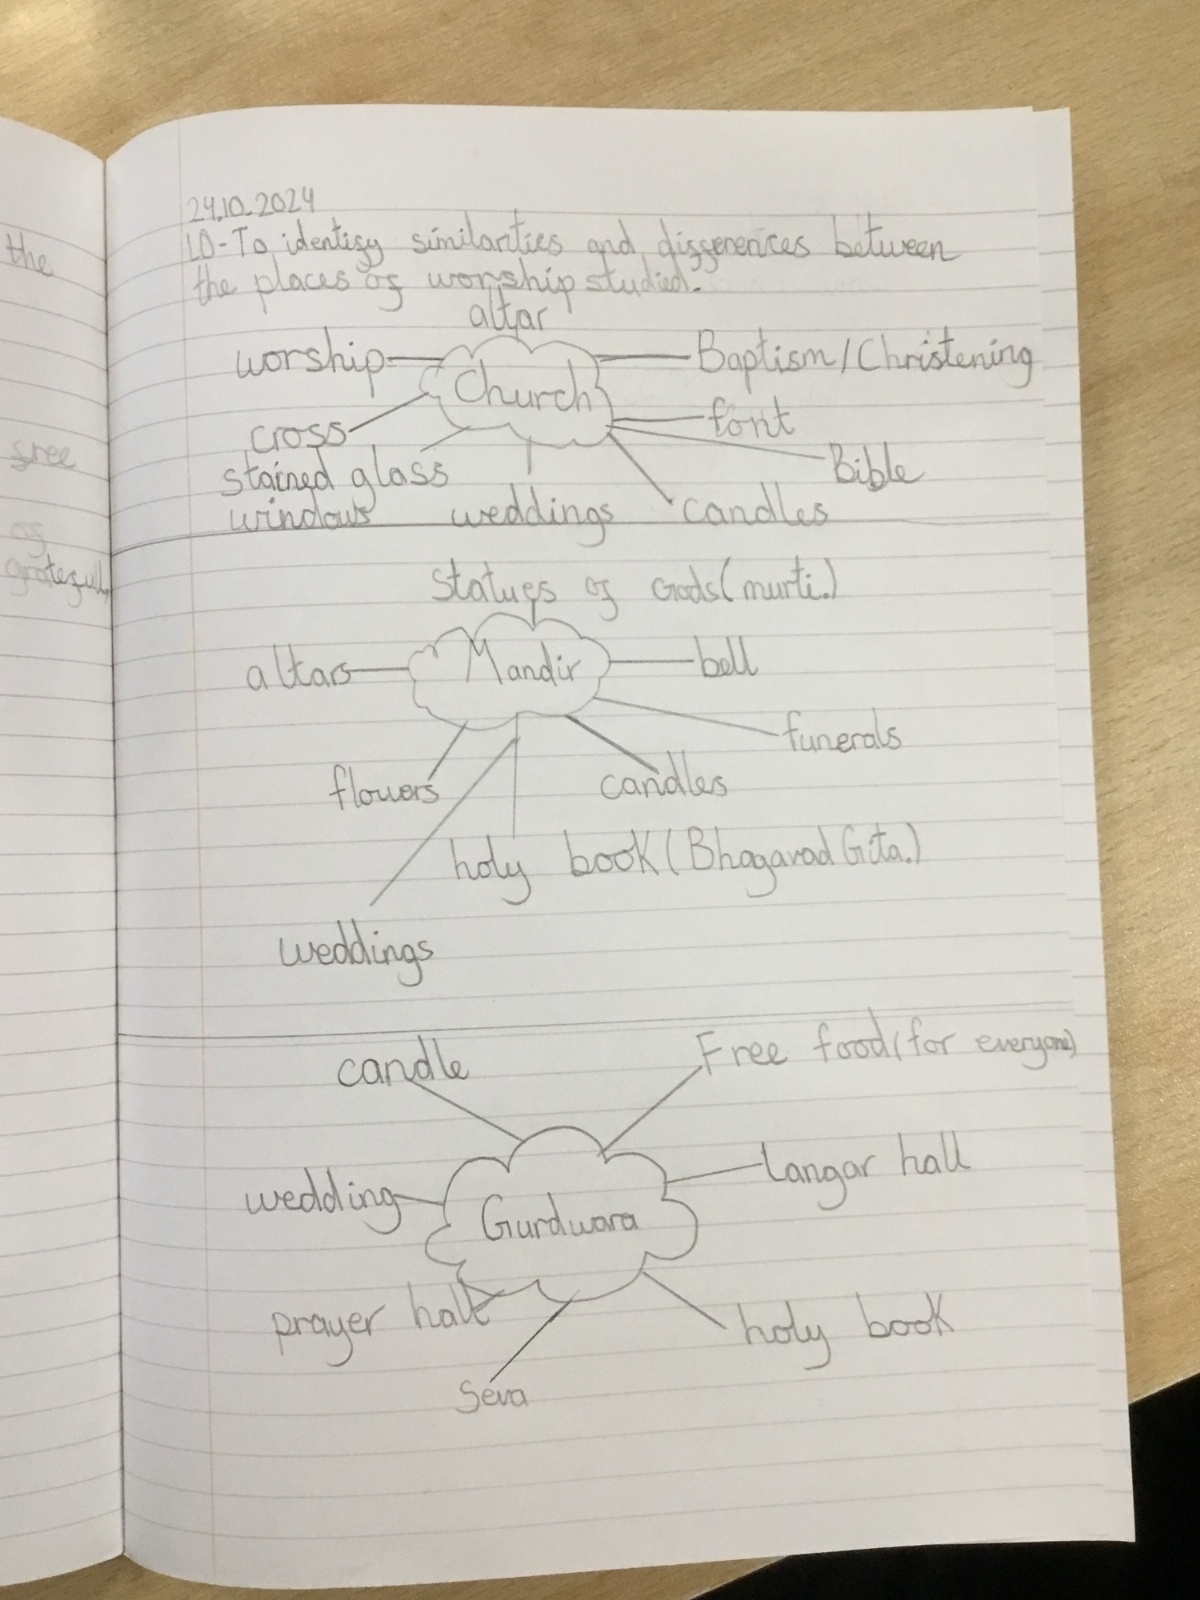 the
free
of
gratefull
24.10.2024
LO-To identify similarities and differences between
the places of worship studied.
altar
worship
Church
Baptism/Christening
cross
font
stained glass
windows
Bible
weddings
candles
Statues of Gods(murti.)
altars
Mandir
bell
funerals
flowers
candles
holy book(Bhagavad Gita.)
weddings
candle
Free food(for everyone)
wedding
Gurdwara
Langar hall
prayer hall
holy book
Seva